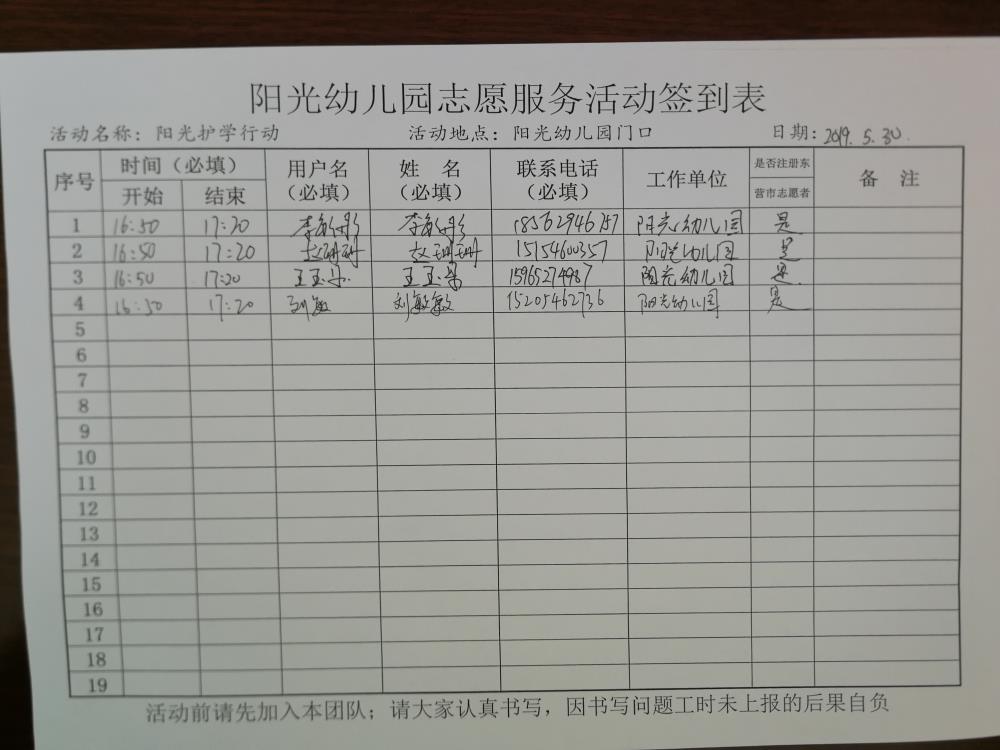 阳光幼儿园志愿服务活动签到表
活动名称：阳光护学行动 活动地点：阳光幼儿园门口 日期：2019.5.30.
序号 时间（必填） 用户名（必填） 姓 名（必填） 联系电话（必填） 工作单位 是否注册东营市志愿者 备 注
开始 结束
1 16:50 17:20 李 李 阳光幼儿园 是
2 16:50 17:20 赵珊珊 赵珊珊 15154600357 阳光幼儿园 是
3 16:50 17:20 王玉 王玉 阳光幼儿园 是
4 16:50 17:20 刘敏 刘敏敏 15205462736 阳光幼儿园 是
5
6
7
8
9
10
11
12
13
14
15
16
17
18
19
活动前请先加入本团队；请大家认真书写，因书写问题工时未上报的后果自负